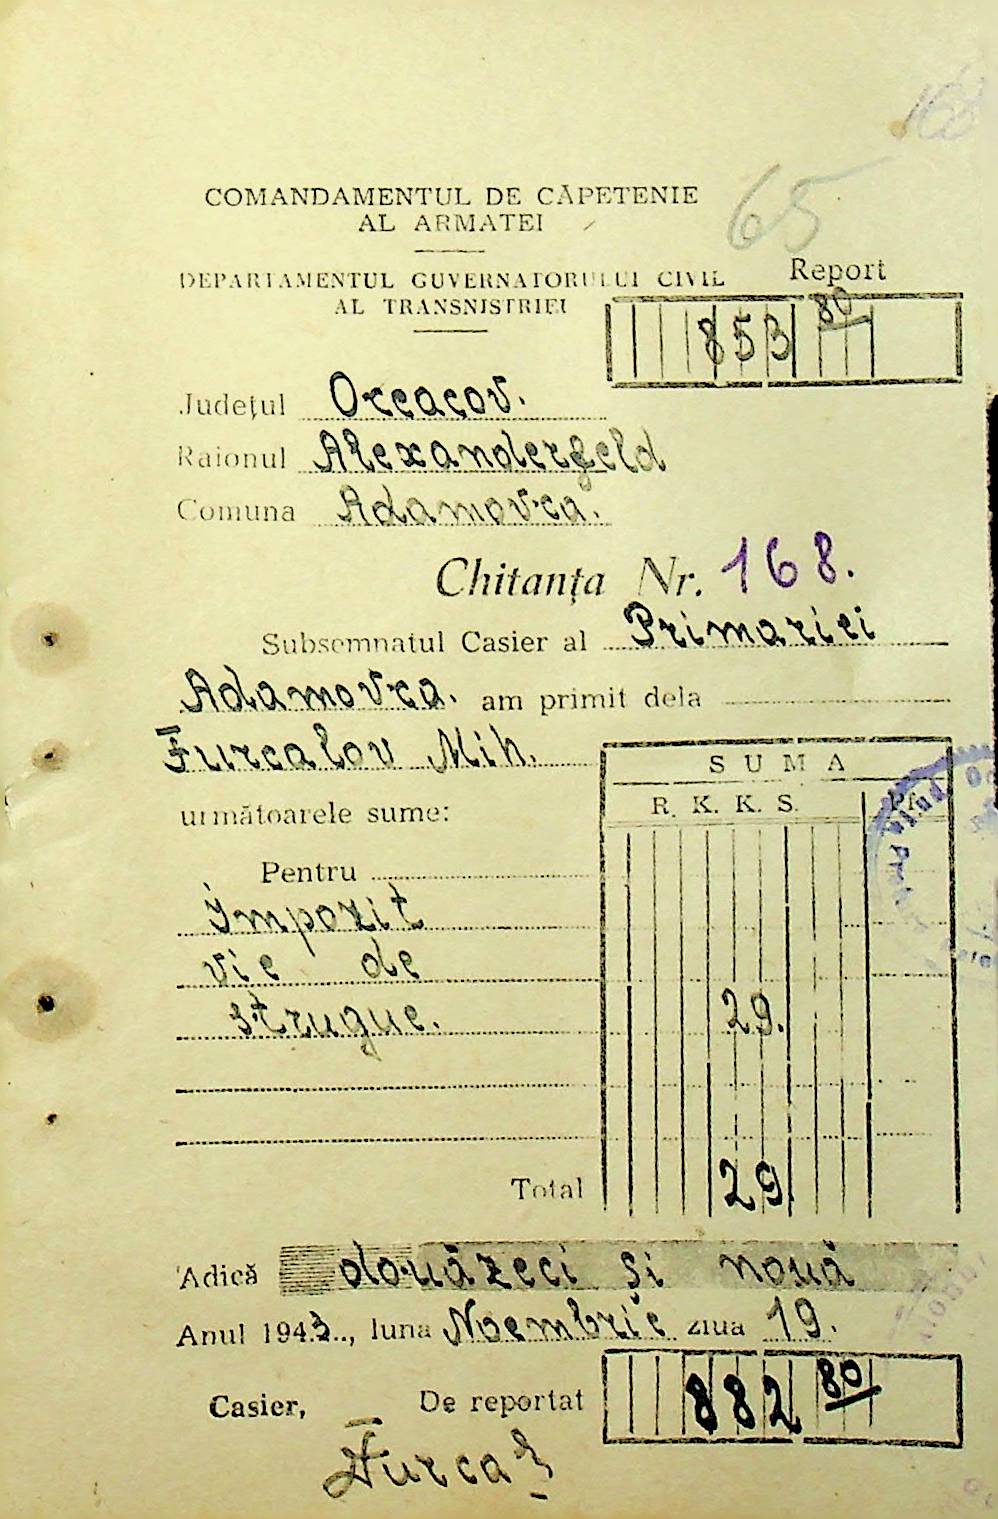 168
65
COMANDAMENTUL DE CĂPETENIE
AL ARMATEI
DEPARTAMENTUL GUVERNATORULUI CIVIL
AL TRANSNISTRIEI
Report
853 80
Județul Oceacov.
Raionul Alexanderfeld
Comuna Adamovca.
Chitanța Nr. 168.
Subsemnatul Casier al Primariei
Adamovca. am primit dela
Furcalov Mih.
următoarele sume:
SUMA
R. K. K. S. Pf.
Pentru
Impozit
vie de
strugue. 29.
Total 29.
Adică douăzeci și nouă
Anul 1943.., luna Noembrie ziua 19.
Casier, De reportat 882 80
Furca